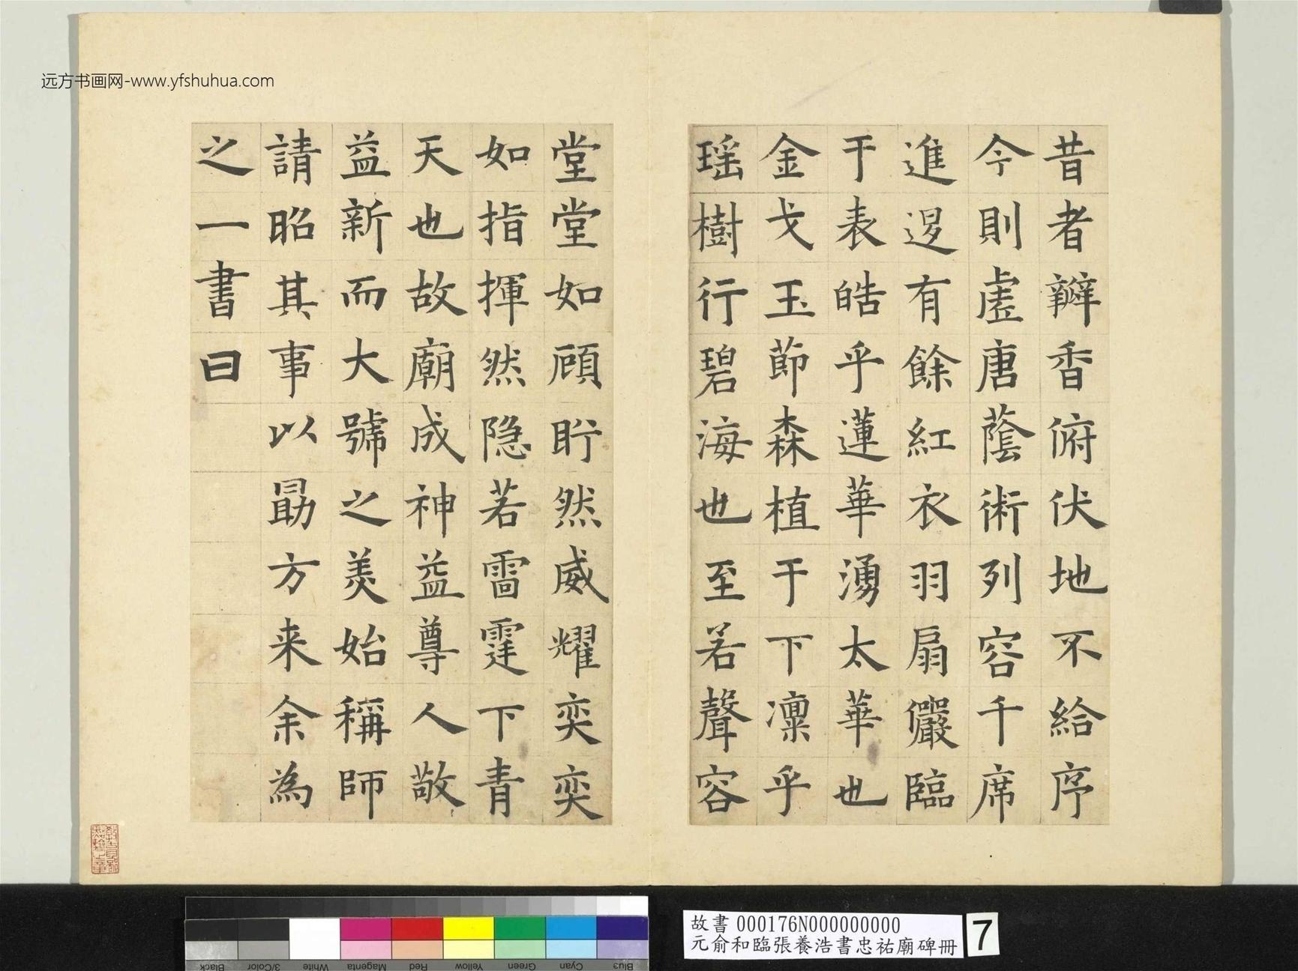 远方书画网-www.yfshuhua.com
昔者辦香俯伏地不給序
今則虛唐蔭術列容千席
進逻有餘紅衣羽扇儼臨
于表皓乎蓮華湧太華也
金戈玉節森植于下凛乎
瑶樹行碧海也至若聲容
堂堂如顧盻然威耀奕奕
如指揮然隐若雷霆下青
天也故廟成神益尊人敬
益新而大號之美始稱師
請昭其事以勗方来余為
之一書曰
故書 000176N000000000
元俞和臨張養浩書忠祐廟碑冊
7
Black
3/Color
White
Magenta
Red
Yellow
Green
Cyan
Blue